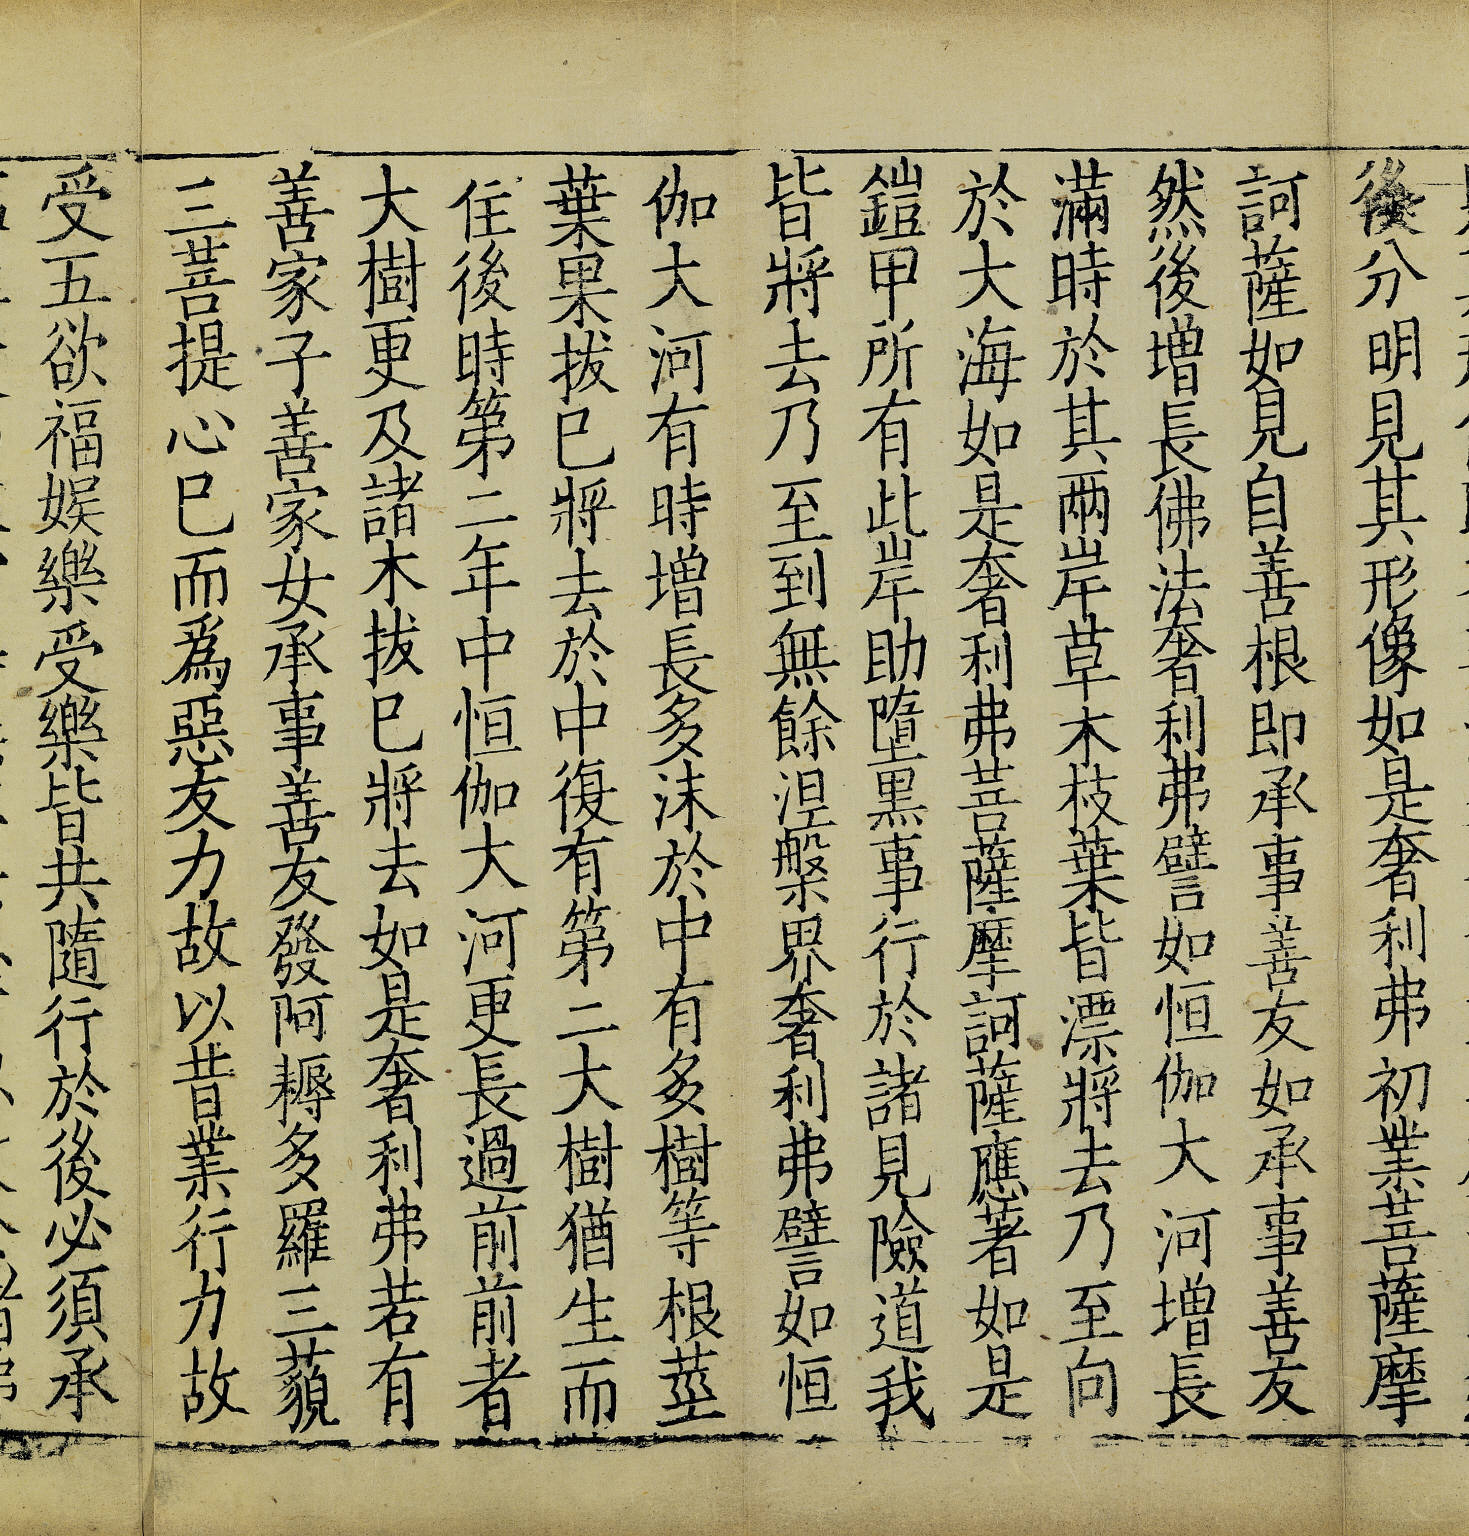 後分明見其形像如是奢利弗初業菩薩摩
訶薩如見自善根即承事善友如承事善友
然後增長佛法奢利弗譬如恒伽大河增長
滿時於其兩岸草木枝葉皆漂將去乃至向
於大海如是奢利弗菩薩摩訶薩應著如是
鎧甲所有此岸助墮黑事行於諸見險道我
皆將去乃至到無餘涅槃界奢利弗譬如恒
伽大河有時增長多沫於中有多樹等根莖
葉果拔已將去於中復有第二大樹猶生而
住後時第二年中恒伽大河更長過前前者
大樹更及諸木拔已將去如是奢利弗若有
善家子善家女承事善友發阿耨多羅三藐
三菩提心已而為惡友力故以昔業行力故
受五欲福娛樂受樂皆共隨行於後必須承